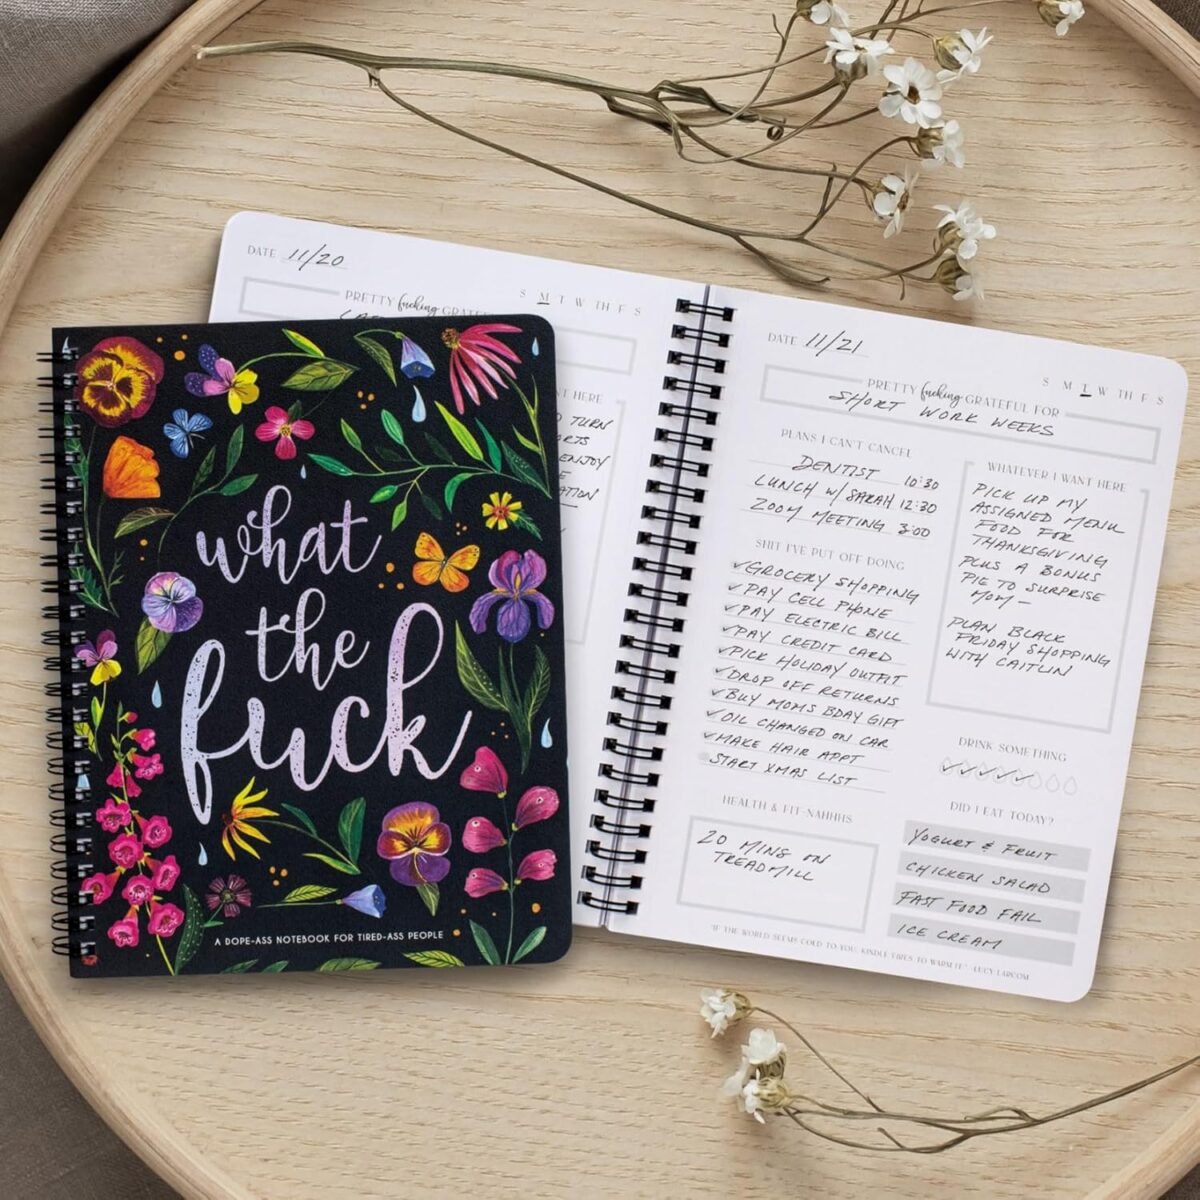 DATE 11/20
S M T W TH F S
PRETTY fucking GRATEFUL
HERE
TURN
ENJOY
what
the
fuck
A DOPE-ASS NOTEBOOK FOR TIRED-ASS PEOPLE
DATE 11/21
S M T W TH F S
PRETTY fucking GRATEFUL FOR
SHORT WORK WEEKS
PLANS I CAN'T CANCEL
DENTIST 10:30
LUNCH W/ SARAH 12:30
ZOOM MEETING 3:00
SHIT I'VE PUT OFF DOING
GROCERY SHOPPING
PAY CELL PHONE
PAY ELECTRIC BILL
PAY CREDIT CARD
PICK HOLIDAY OUTFIT
DROP OFF RETURNS
BUY MOMS BDAY GIFT
OIL CHANGED ON CAR
MAKE HAIR APPT
START XMAS LIST
HEALTH & FIT-NAHHHS
20 MINS ON
TREADMILL
WHATEVER I WANT HERE
PICK UP MY
ASSIGNED MENU
FOOD FOR
THANKSGIVING
PLUS A BONUS
PIE TO SURPRISE
MOM-
PLAN BLACK
FRIDAY SHOPPING
WITH CAITLIN
DRINK SOMETHING
DID I EAT TODAY?
YOGURT & FRUIT
CHICKEN SALAD
FAST FOOD FAIL
ICE CREAM
"IF THE WORLD SEEMS COLD TO YOU, KINDLE FIRES TO WARM IT." -LUCY LARCOM